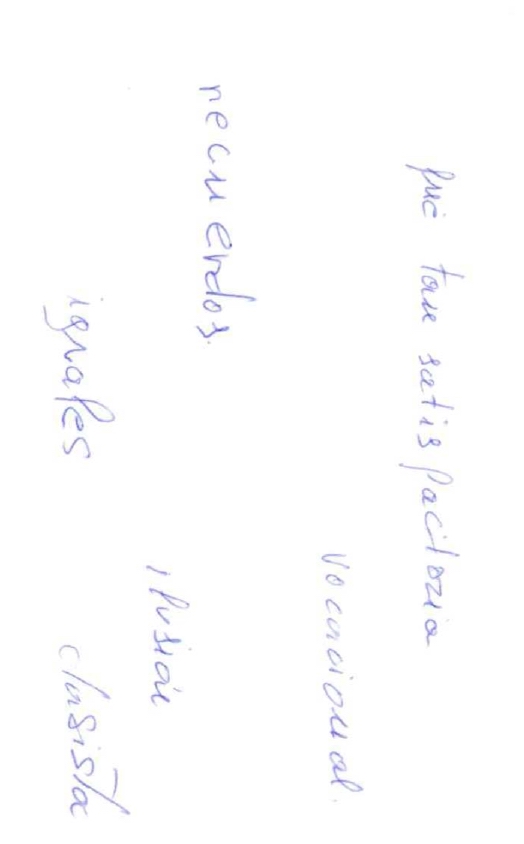 fue tan satisfactoria
vocacional.
recuerdos.
ilusión
iguales clasista